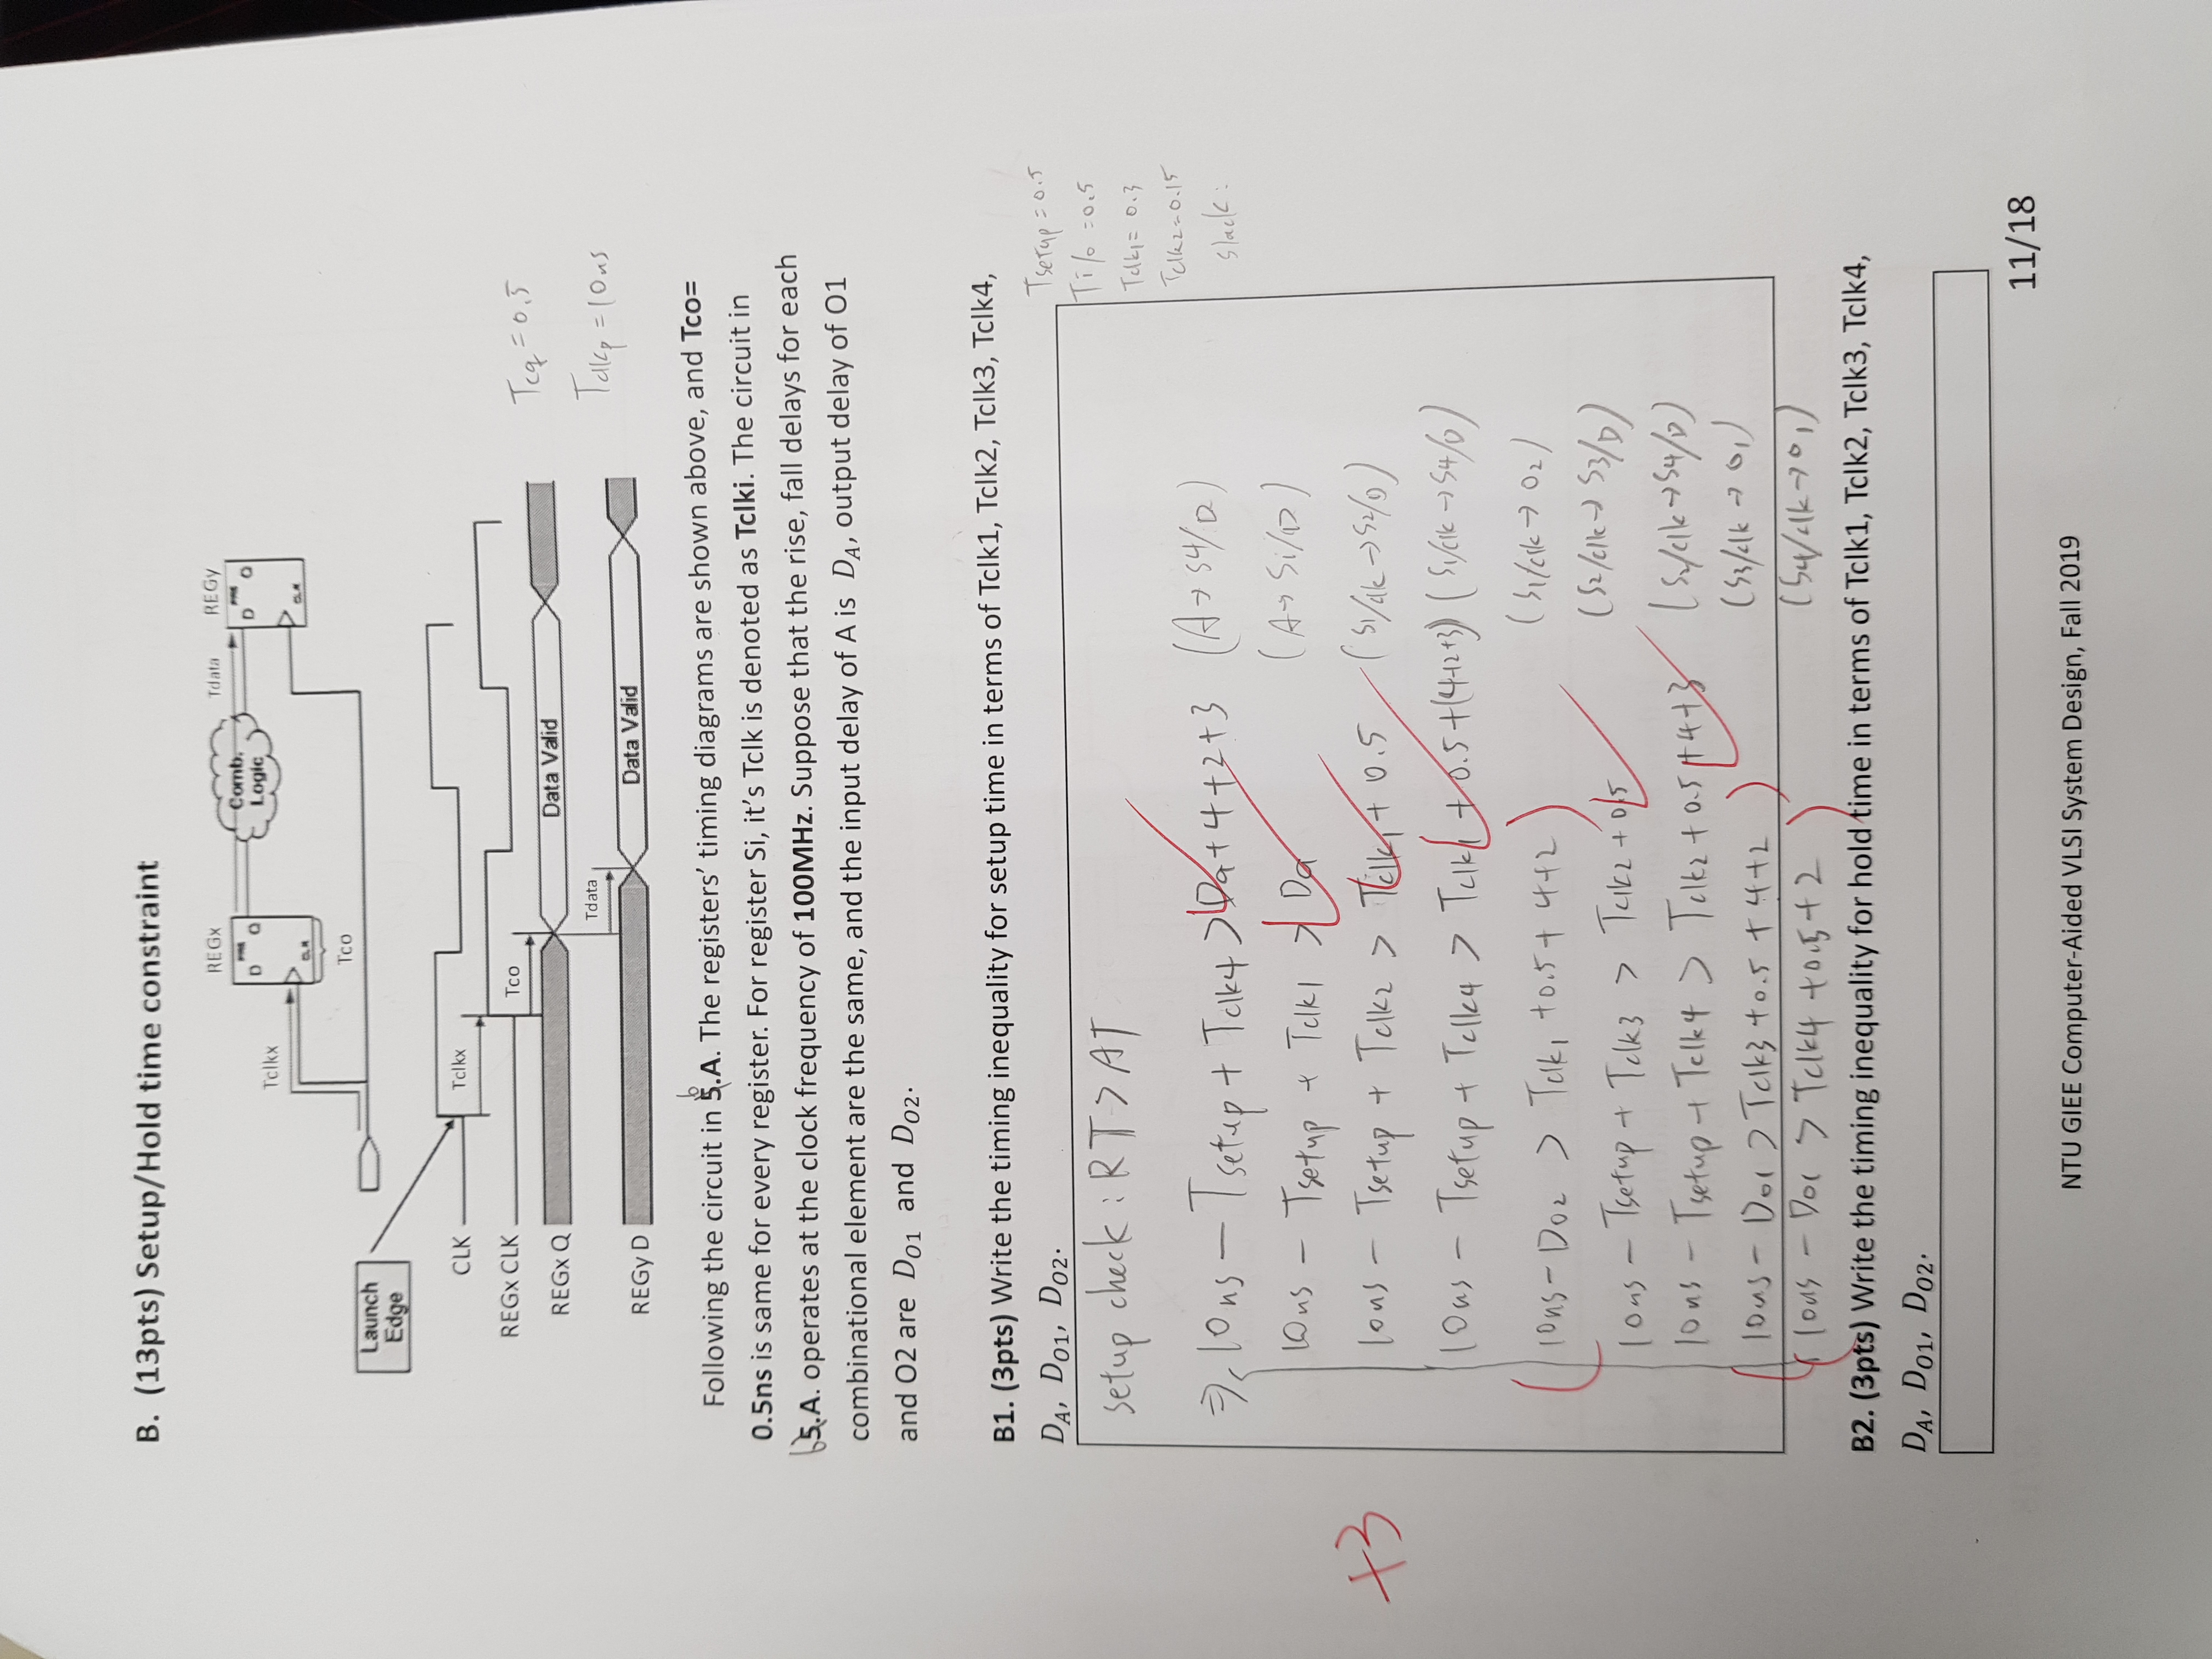 B. (13pts) Setup/Hold time constraint
REGx
Tdata
REGy
D
Q
Comb.
Logic
D
Q
Tclkx
CLR
CLR
Tco
Launch
Edge
CLK
Tclkx
REGx CLK
Tco
Tcq = 0.5
REGx Q
Data Valid
Tdata
Tclkp = 10ns
REGy D
Data Valid
6
Following the circuit in 5.A. The registers' timing diagrams are shown above, and Tco=
0.5ns is same for every register. For register Si, it's Tclk is denoted as Tclki. The circuit in
6 5.A. operates at the clock frequency of 100MHz. Suppose that the rise, fall delays for each
combinational element are the same, and the input delay of A is D_A, output delay of O1
and O2 are D_O1 and D_O2.
B1. (3pts) Write the timing inequality for setup time in terms of Tclk1, Tclk2, Tclk3, Tclk4,
D_A, D_O1, D_O2.
Tsetup = 0.5
Ti/o = 0.5
Tclk1 = 0.3
Tclk2 = 0.15
slack :
setup check : RT > AT
⇒ 10ns − Tsetup + Tclk4 > Da + 4 + 2 + 3 (A → S4/D)
10ns − Tsetup + Tclk1 > Da (A → S1/D)
+3
10ns − Tsetup + Tclk2 > Tclk1 + 0.5 (S1/clk → S2/D)
10ns − Tsetup + Tclk4 > Tclk1 + 0.5 + (4+2+3) (S1/clk → S4/D)
10ns − Do2 > Tclk1 + 0.5 + 4+2 (S1/clk → O2)
10ns − Tsetup + Tclk3 > Tclk2 + 0.5 (S2/clk → S3/D)
10ns − Tsetup + Tclk4 > Tclk2 + 0.5 + 4+3 (S2/clk → S4/D)
10ns − Do1 > Tclk3 + 0.5 + 4+2 (S3/clk → O1)
10ns − Do1 > Tclk4 + 0.5 + 2 (S4/clk → O1)
B2. (3pts) Write the timing inequality for hold time in terms of Tclk1, Tclk2, Tclk3, Tclk4,
D_A, D_O1, D_O2.
11/18
NTU GIEE Computer-Aided VLSI System Design, Fall 2019